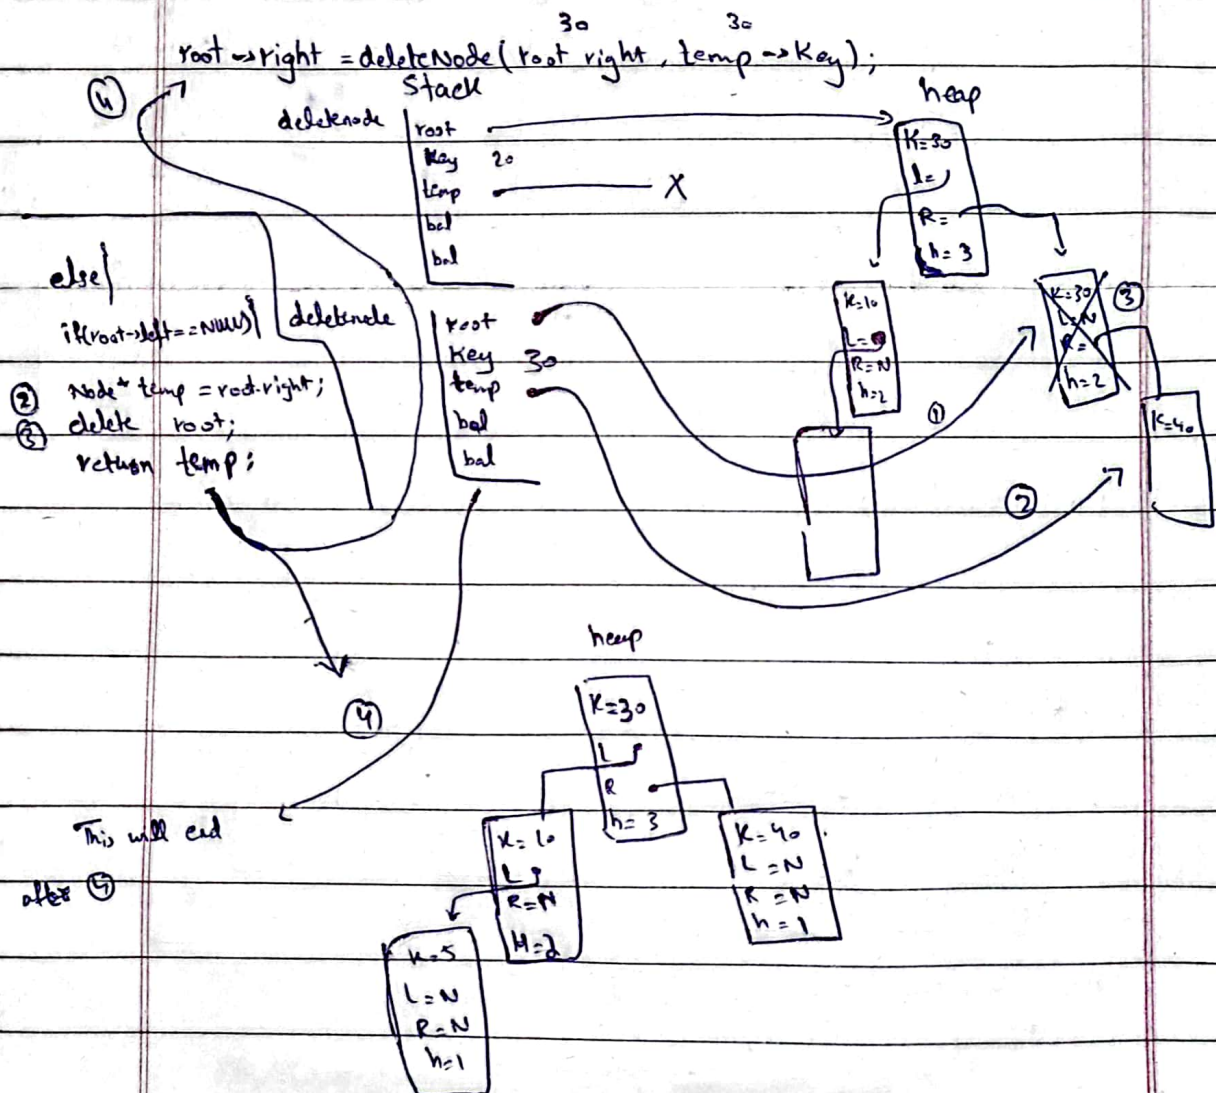 30 30
root->right = deleteNode(root right, temp->Key);
4
Stack
heap
deletenode
root
Key 20
temp X
bal
bal
K=30
l=
R=
h=3
else{
if(root->left==NULL){
2 Node* temp = root.right;
3 delete root;
return temp;
deletenode
root
Key 30
temp
bal
bal
K=10
L=
R=N
h=2
K=30
L=N
R=
h=2
3
K=40
1
2
4
heap
K=30
L
R
h=3
K=10
L
R=N
H=2
K=40
L=N
R=N
h=1
K=5
L=N
R=N
h=1
This will end
after 4